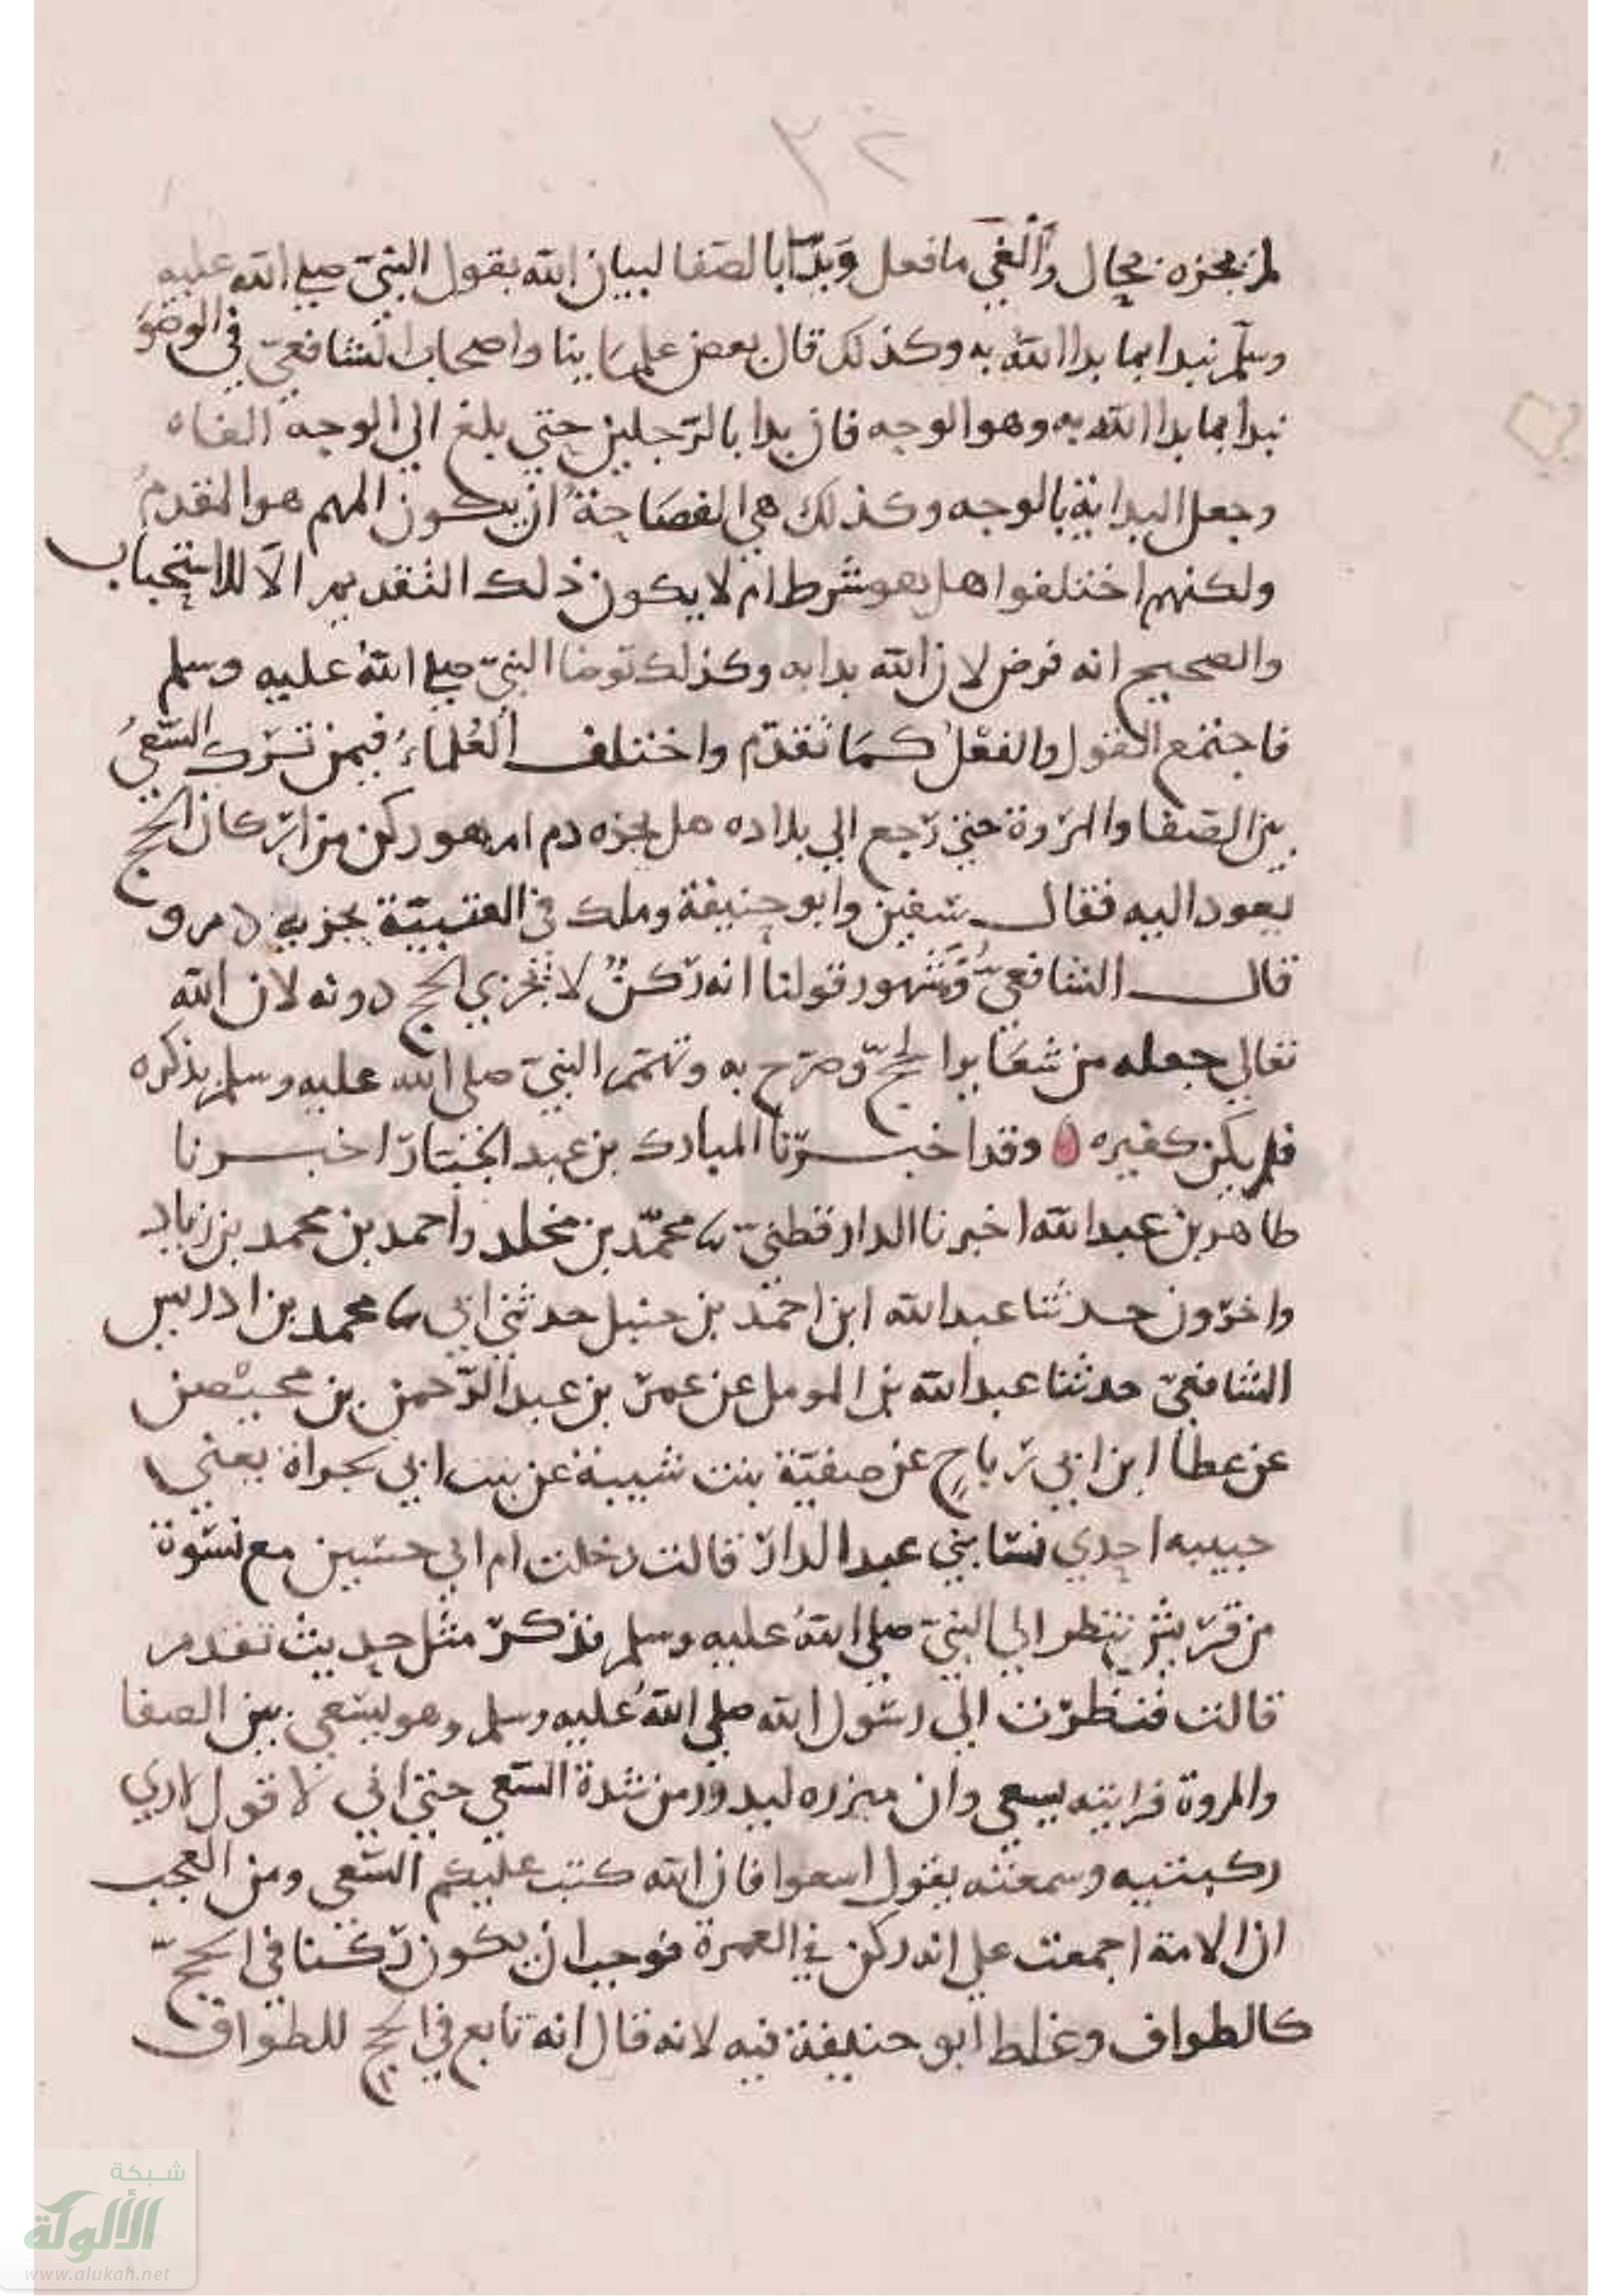 ٣٤
لم يجزه بحال وألغى ما فعل وبدأ بالصفا لبيان الله بقول النبي صلى الله عليه
وسلم نبدا بما بدا الله به وكذلك قال بعض علماينا واصحاب الشافعي في الوضو
نبدا بما بدا الله به وهو الوجه فان بدا بالرجلين حتى بلغ الي الوجه الغاه
وجعل البداية بالوجه وكذلك هي الفصاحة ان يكون المهم هو المقدم
ولكنهم اختلفوا هل هو شرط ام لا يكون ذلك التقديم الا للاستحباب
والصحيح انه فرض لان الله بدا به وكذلك توضا النبي صلي الله عليه وسلم
فاجتمع القول والفعل كما تقدم واختلف العلماء فيمن ترك السعي
بين الصفا والمروة حتى رجع الي بلاده هل يجزه دم ام هو ركن من اركان الحج
يعود اليه فقال سفين وابو حنيفة وملك في العتبية يجزيه دم و
قال الشافعي ومشهور قولنا انه ركن لا يجزي الحج دونه لان الله
تعالي جعله من شعاير الحج وصرح به وتهمم النبي صلى الله عليه وسلم بذكره
فلم يكن كغيره ه وقد اخبرنا المبارك بن عبد الجبار اخبرنا
طاهر بن عبد الله اخبرنا الدارقطني نا محمد بن مخلد واحمد بن محمد بن زياد
واخرون حدثنا عبد الله ابن احمد بن حنبل حدثني ابي نا محمد بن ادريس
الشافعي حدثنا عبد الله بن المومل عن عمر بن عبد الرحمن بن محيصن
عن عطا ابن ابي رباح عن صفية بنت شيبة عن بنت ابي تجراة يعني
حبيبه احدي نسا بني عبد الدار قالت دخلت ام ابي حسين مع نسوة
من قريش ننظر الي النبي صلي الله عليه وسلم فذكر مثل حديث تقدم
قالت فنظرت الي رسول الله صلي الله عليه وسلم وهو يسعي بين الصفا
والمروة فرايته يسعي وان ميزره ليدور من شدة السعي حتي اني لا قول لاري
ركبتيه وسمعته يقول اسعوا فان الله كتب عليكم السعي ومن العجب
ان الامة اجمعت علي انه ركن في العمرة فوجب ان يكون ركنا في الحج
كالطواف وغلط ابو حنيفة فيه لانه قال انه تابع في الحج للطواف
شبكة
الألوكة
www.alukah.net